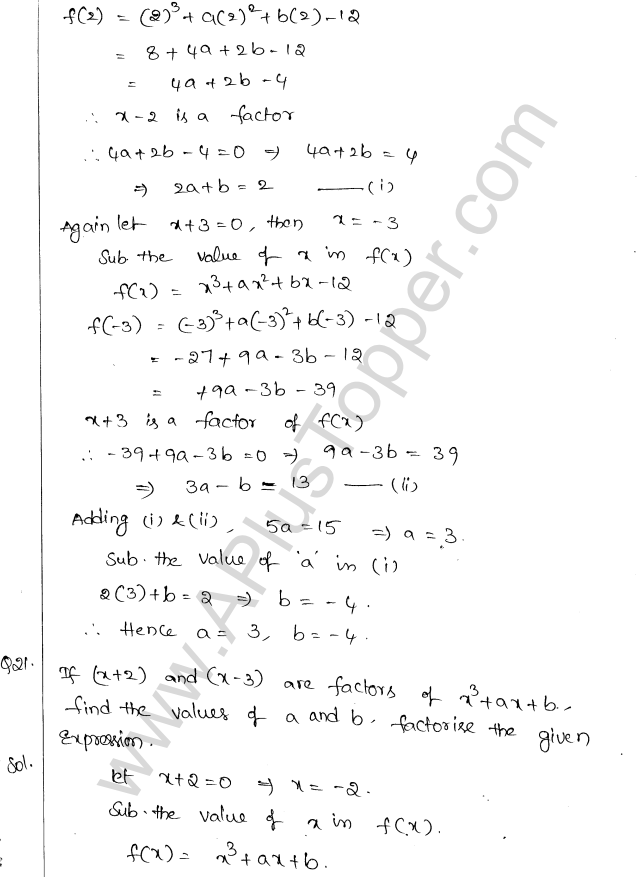 f(2) = (2)³ + a(2)² + b(2) - 12
= 8 + 4a + 2b - 12
= 4a + 2b - 4
∴ x-2 is a factor
∴ 4a + 2b - 4 = 0 ⇒ 4a + 2b = 4
⇒ 2a + b = 2 —— (i)
Again let x+3 = 0, then x = -3
Sub the value of x in f(x)
f(x) = x³ + ax² + bx - 12
f(-3) = (-3)³ + a(-3)² + b(-3) - 12
= -27 + 9a - 3b - 12
= +9a - 3b - 39
x+3 is a factor of f(x)
∴ -39 + 9a - 3b = 0 ⇒ 9a - 3b = 39
⇒ 3a - b = 13 —— (ii)
Adding (i) & (ii), 5a = 15 ⇒ a = 3.
Sub. the value of 'a' in (i)
2(3) + b = 2 ⇒ b = -4.
∴ Hence a = 3, b = -4.
Q21. If (x+2) and (x-3) are factors of x³ + ax + b,
find the values of a and b. factorise the given
Expression.
Sol. let x+2 = 0 ⇒ x = -2.
Sub. the value of x in f(x).
f(x) = x³ + ax + b.
www.APlusTopper.com